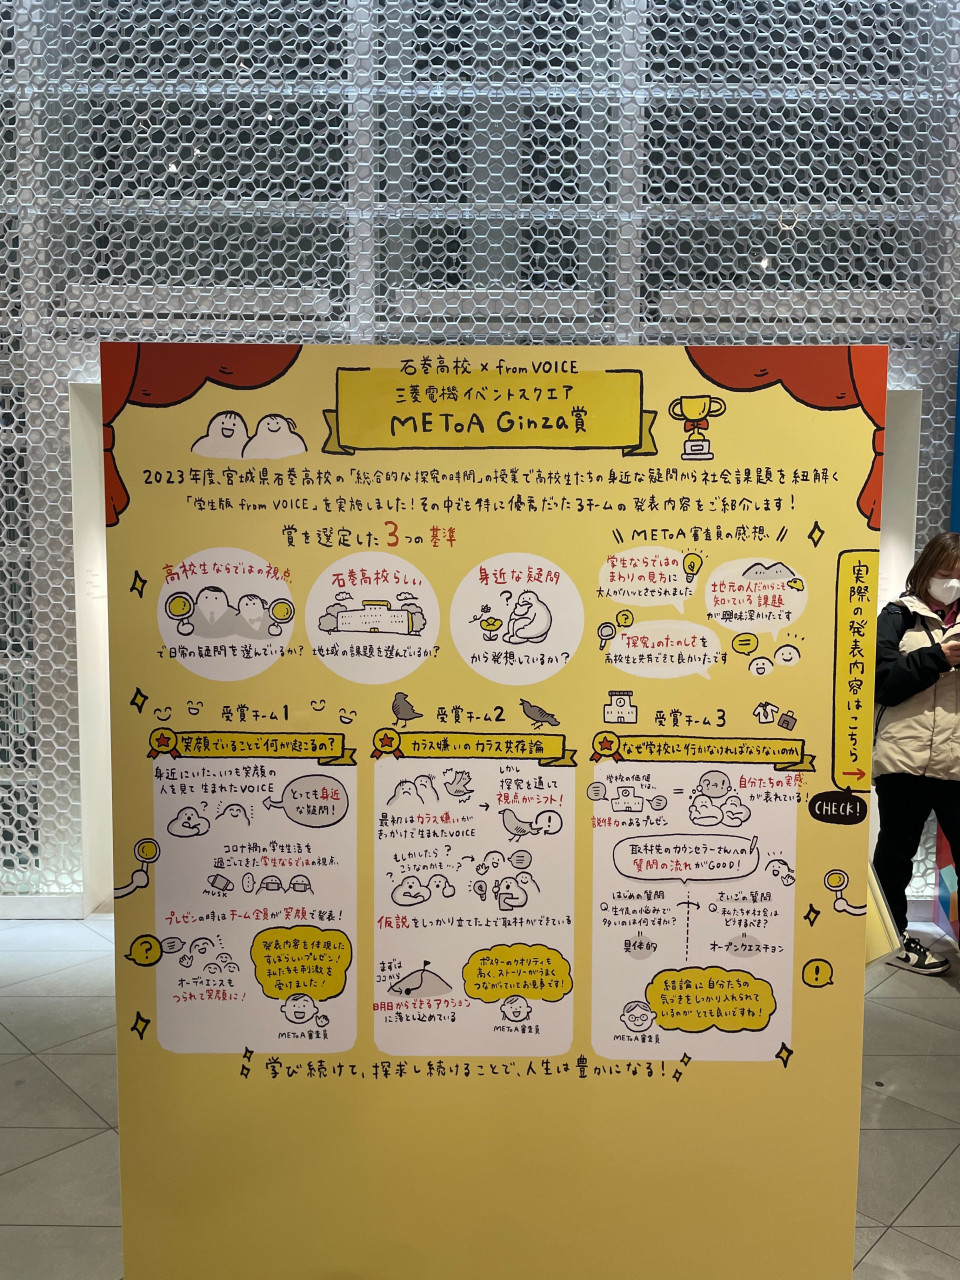 石巻高校 × from VOICE
三菱電機イベントスクエア
METoA Ginza賞
2023年度、宮城県石巻高校の「総合的な探究の時間」の授業で高校生たちの身近な疑問から社会課題を紐解く
「学生版 from VOICE」を実施しました！その中でも特に優秀だった3チームの発表内容をご紹介します！
賞を選定した3つの基準
高校生ならではの視点
で日常の疑問を選んでいるか？
石巻高校らしい
地域の課題を選んでいるか？
身近な疑問
から発想しているか？
\\ METoA審査員の感想 //
学生ならではの
まわりの見方に
大人がハッとさせられました
地元の人だからこそ
知っている課題
が興味深かったです
「探究」のたのしさを
高校生と共有できて良かったです
実際の発表内容はこちら→
CHECK!
受賞チーム1
笑顔でいることで何が起こるの？
身近にいた、いつも笑顔の
人を見て生まれたVOICE
とっても身近
な疑問！
コロナ禍の学生生活を
過ごしてきた学生ならではの視点
MUSK
プレゼンの時はチーム全員が笑顔で発表！
オーディエンスも
つられて笑顔に！
発表内容を体現した
すばらしいプレゼン！
私たちも刺激を
受けました！
METoA審査員
受賞チーム2
カラス嫌いのカラス共存論
最初はカラス嫌いが
きっかけで生まれたVOICE
しかし
探究を通して
視点がシフト！
もしかしたら？
こうなのかも…？
仮説をしっかり立てた上で取材ができている
まずは
ココから
明日からできるアクション
に落とし込めている
ポスターのクオリティも
高く、ストーリーがうまく
つながっていてお見事です！
METoA審査員
受賞チーム3
なぜ学校に行かなければならないのか
学校の価値
とは、、
説得力のあるプレゼン
=
自分たちの実感
が表れている！
取材先のカウンセラーさんへの
質問の流れがGOOD！
はじめの質問
Q 生徒の悩みで
多いのは何ですか？
具体的
さいごの質問
Q 私たちや社会は
どうするべき？
オープンクエスチョン
結論に自分たちの
気づきをしっかり入れられて
いるのがとても良いですね！
METoA審査員
学び続けて、探求し続けることで、人生は豊かになる！